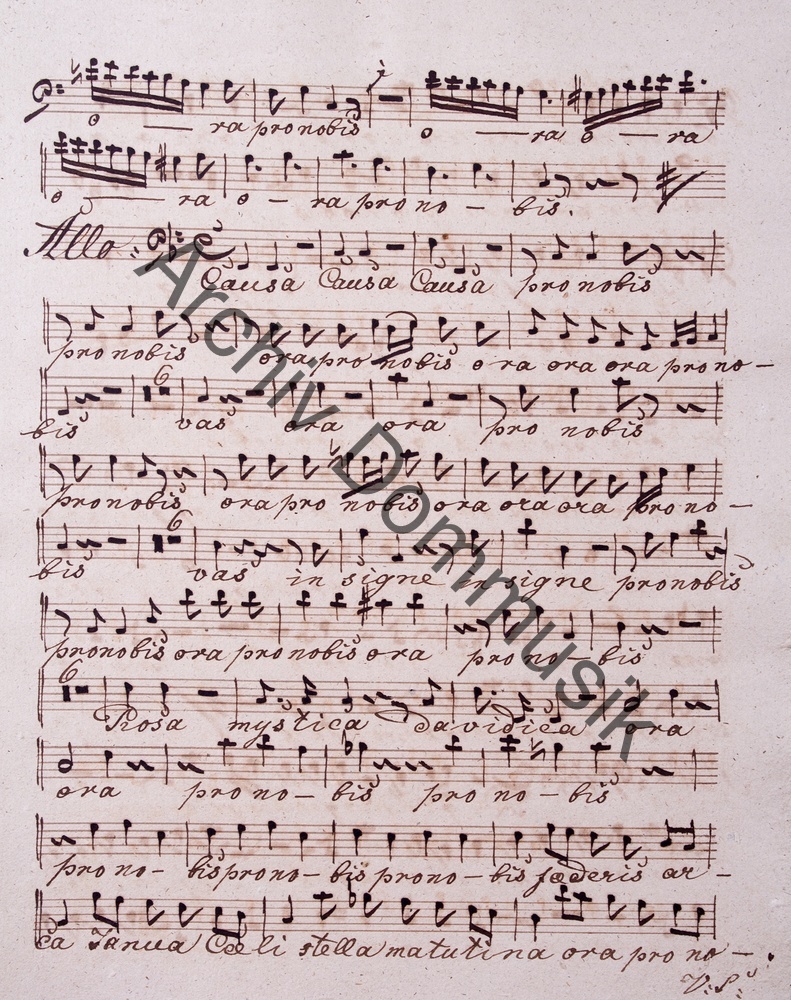 o — ra pro nobis o — ra o — ra
o — ra o — ra pro no — bis.
Allo: Causa Causa Causa pro nobis
pro nobis ora pro nobis o ra ora ora pro no —
6
bis vas ora ora pro nobis
pro nobis ora pro nobis ora ora ora pro no —
6
bis vas in signe in signe pro nobis
pro nobis ora pro nobis ora pro no — bis
6
Rosa mystica davidica ora
ora pro no — bis pro no — bis
pro no — bis pro no — bis pro no — bis foederis ar —
ca Janua Coeli stella matutina ora pro no —
V: S:
Archiv Dommusik